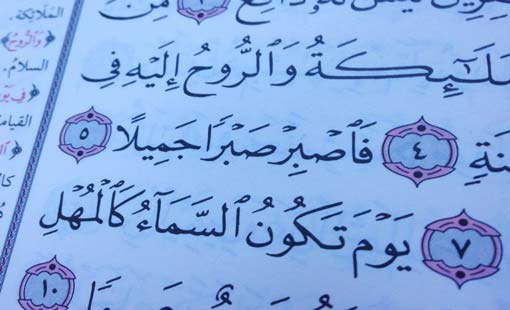 فِرِينَ لَيْسَ لَهُۥ دَافِعٌ ٢ مِّنَ
ٱلْمَلَٰٓئِكَةُ وَٱلرُّوحُ إِلَيْهِ فِى
سَنَةٍ ٤ فَٱصْبِرْ صَبْرًا جَمِيلًا ٥
٧ يَوْمَ تَكُونُ ٱلسَّمَآءُ كَٱلْمُهْلِ
١٠
الملائكة.
﴿وَٱلرُّوحُ﴾
السلام.
﴿فِي يَوْ
القيام